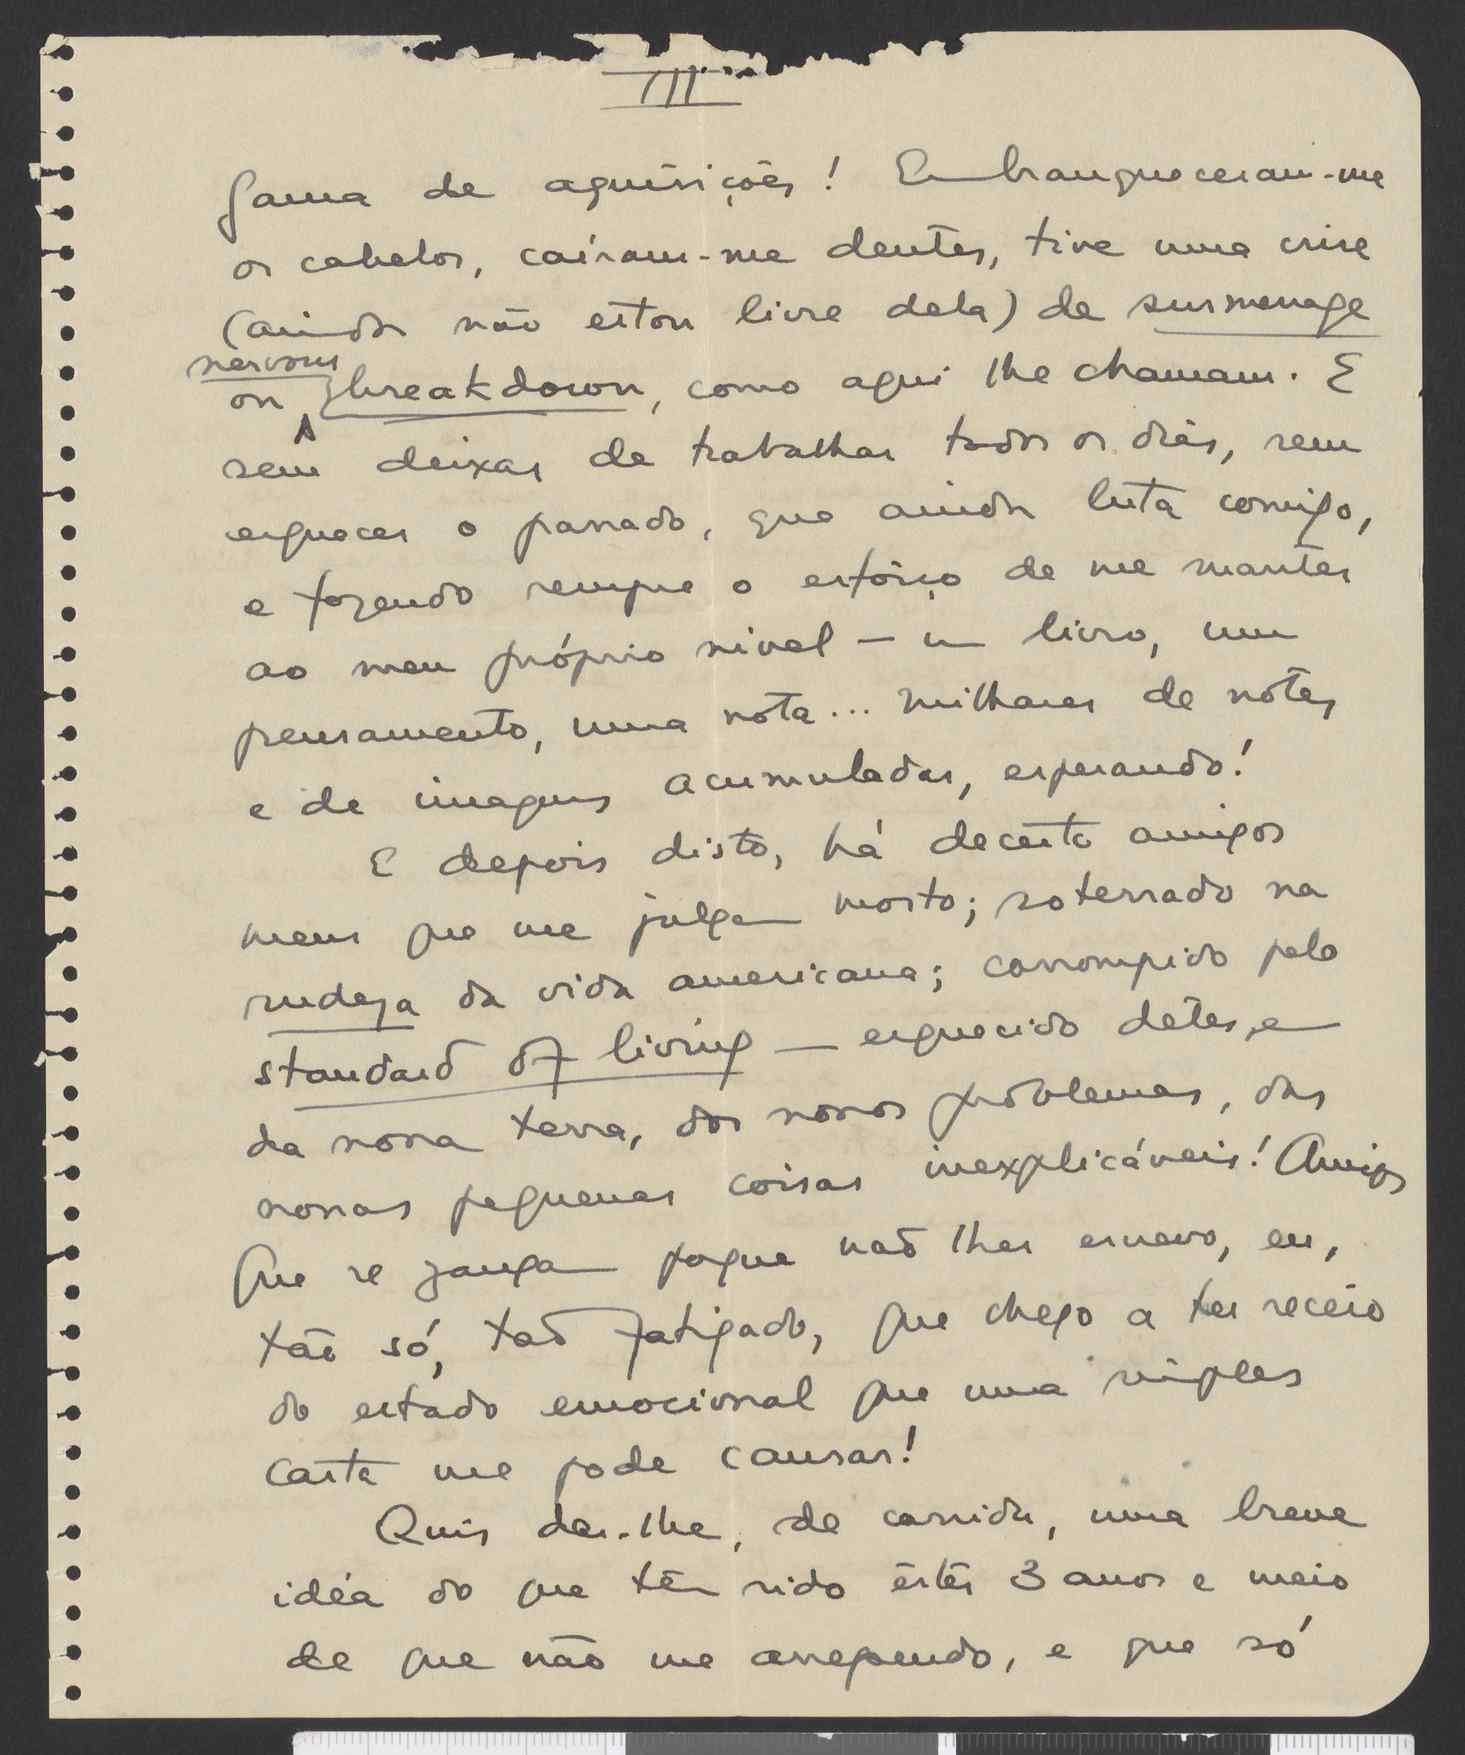 III
gama de aquisições! Embranqueceram-me
os cabelos, caíram-me dentes, tive uma crise
(ainda não estou livre dela) de surmenage
ou nervous breakdown, como aqui lhe chamam. E
sem deixar de trabalhar todos os dias, sem
esquecer o passado, que ainda luta comigo,
e fazendo sempre o esfôrço de me manter
ao meu próprio nivel — um livro, um
pensamento, uma nota... milhares de notas
e de imagens acumuladas, esperando!
E depois disto, há decerto amigos
meus que me julgam morto; soterrado na
rudeza da vida americana; corrompido pelo
standard of living — esquecido dêles, e
da nossa terra, dos nossos problemas, das
nossas pequenas coisas inexplicáveis! Amigos
que se zangam porque não lhes escrevo, eu,
tão só, tão fatigado, que chego a ter receio
do estado emocional que uma simples
carta me pode causar!
Quis dar-lhe, de corrida, uma breve
idéa do que têm sido êstes 3 anos e meio
de que não me arrependo, e que só